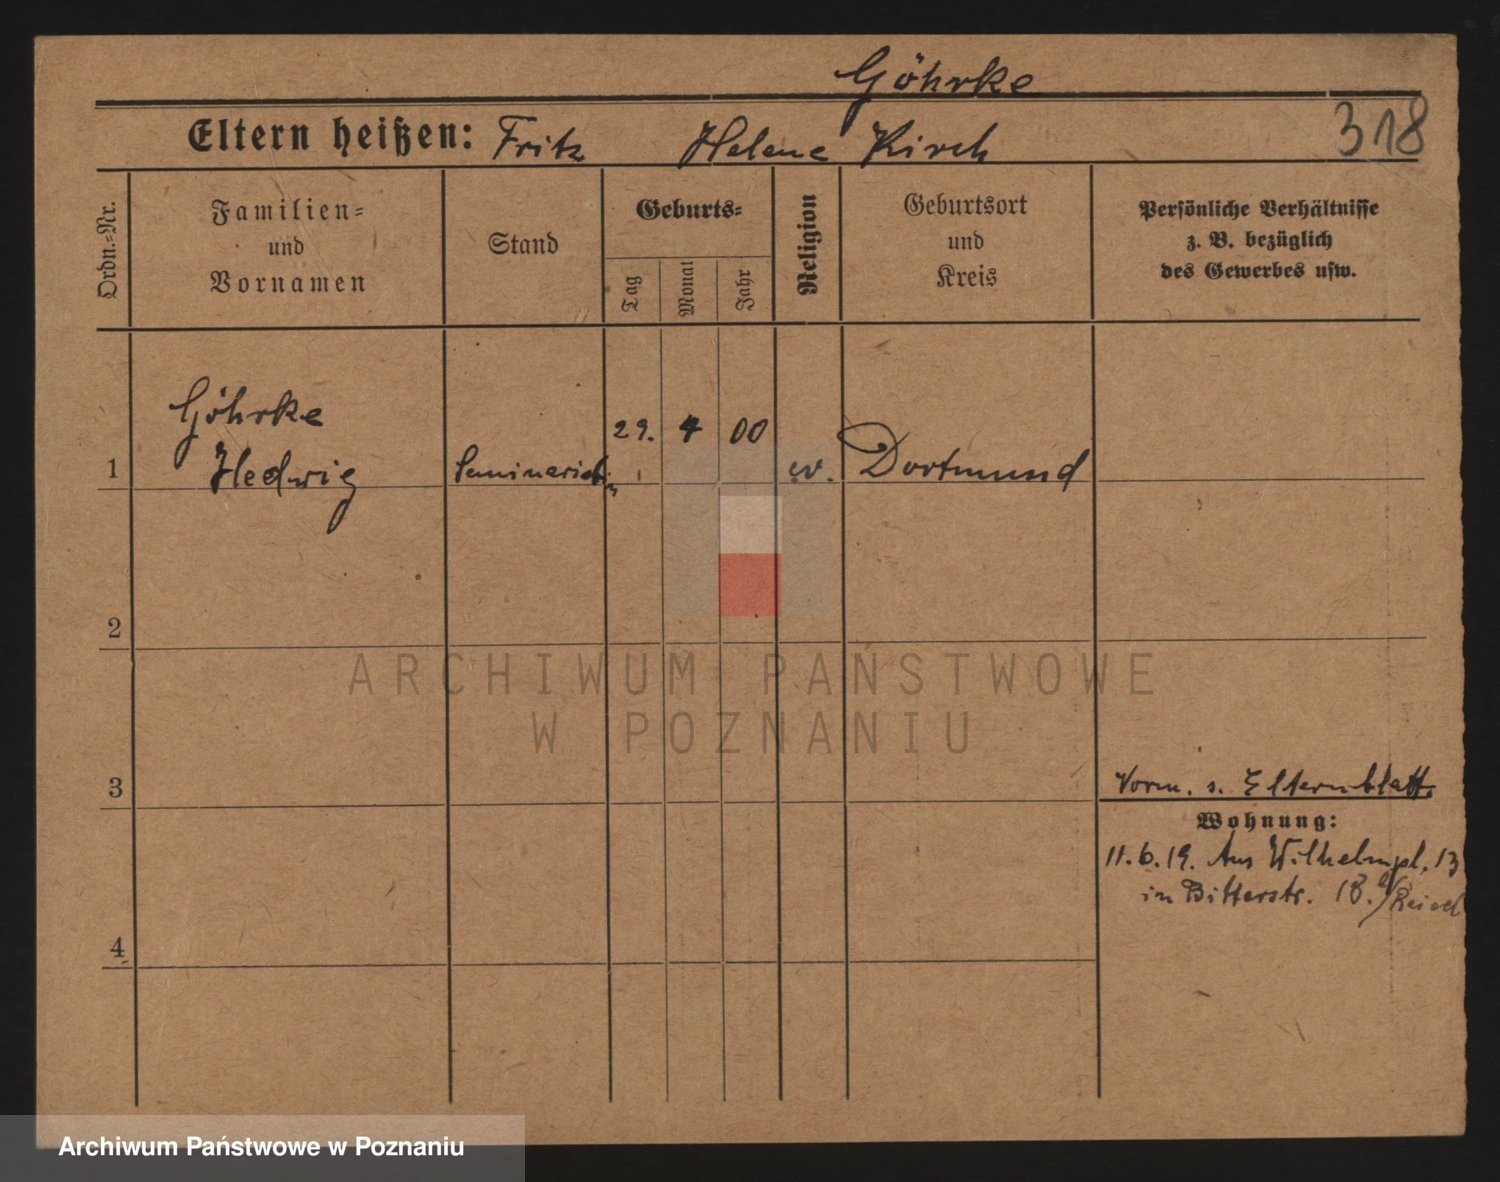 Göhrke
Eltern heißen: Fritz Helene Kirch
318
Ordn.-Nr.
Familien-
und
Vornamen
Stand
Geburts-
Tag
Monat
Jahr
Religion
Geburtsort
und
Kreis
Persönliche Verhältnisse
z. B. bezüglich
des Gewerbes usw.
1
Göhrke
Hedwig
Seminaristin
29. 4 00
ev.
Dortmund
2
ARCHIWUM PAŃSTWOWE
W POZNANIU
3
Vorm. s. Elternblatt.
Wohnung:
11.6.19. Aus Wilhelmpl. 13
in Bitterstr. 18.
4
Archiwum Państwowe w Poznaniu